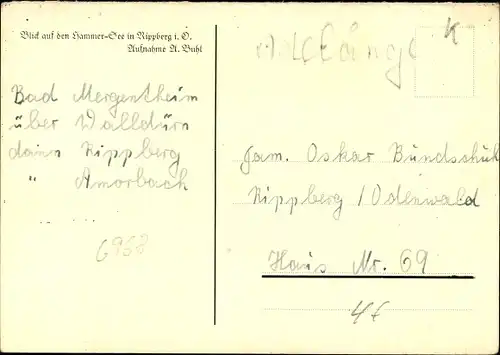 Blick auf den Hammer-See in Rippberg i. O.
Aufnahme A. Buhl
K
Bad Mergentheim
über Walldürn
dann Rippberg
" Amorbach
6968
Fam. Oskar Bundschuh
Rippberg / Odenwald
Haus Nr. 69
4€